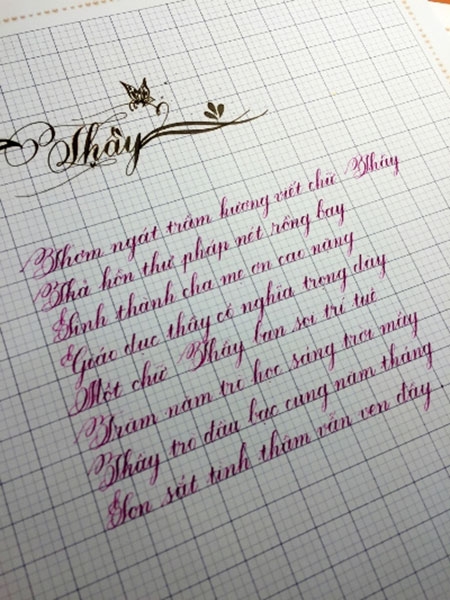 Thầy
Thơm ngát trầm hương viết chữ Thầy
Thả hồn thư pháp nét rồng bay
Sinh thành cha mẹ ơn cao nặng
Giáo dục thầy cô nghĩa trọng dày
Một chữ Thầy ban soi trí tuệ
Trăm năm trò học sáng trời mây
Thầy trò dẫu bạc cùng năm tháng
Son sắt tình thâm vẫn vẹn đầy